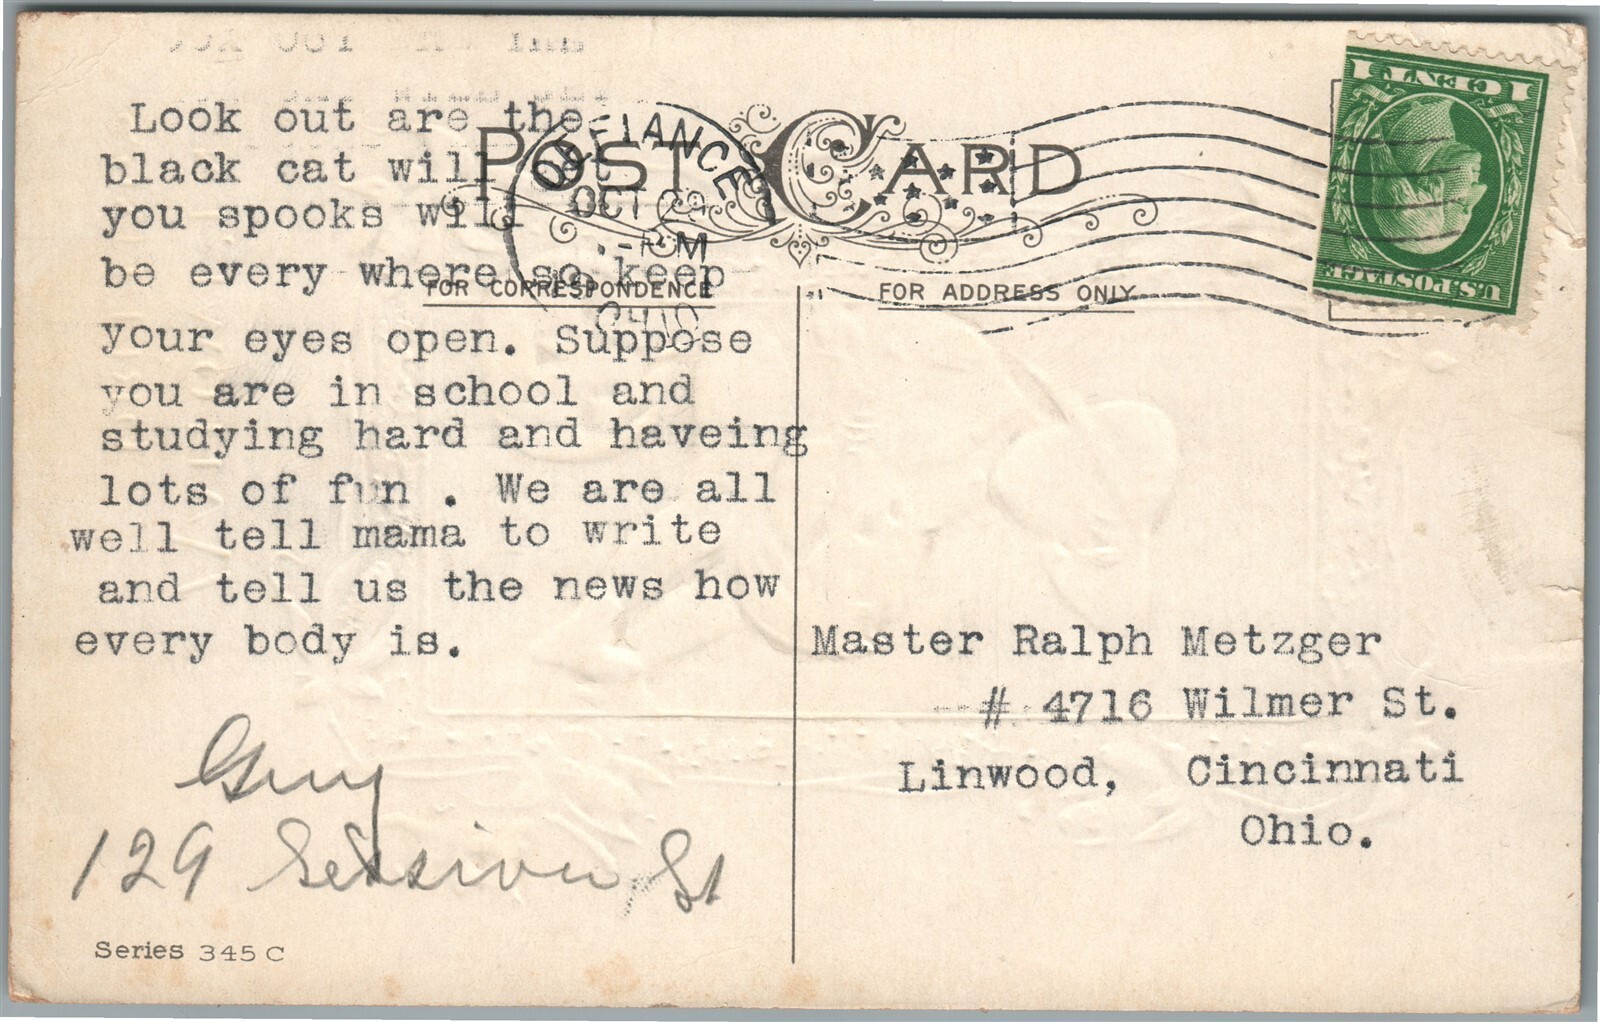 Look out are the
black cat will et
you spooks will
be every where so keep
your eyes open. Suppose
you are in school and
studying hard and haveing
lots of fun . We are all
well tell mama to write
and tell us the news how
every body is.
Guy
129 Session St
Series 345 C
POST CARD
FOR CORRESPONDENCE
FOR ADDRESS ONLY
DEFIANCE
OCT
PM
OHIO
1 CENT 1
U.S. POSTAGE
Master Ralph Metzger
# 4716 Wilmer St.
Linwood, Cincinnati
Ohio.